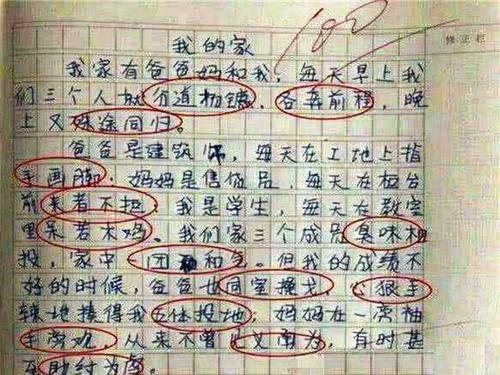 我的家
100
修正栏
我家有爸爸妈和我，每天早上我
们三个人就分道扬镳，各奔前程，晚
上又殊途同归。
爸爸是建筑师，每天在工地上指
手画脚；妈妈是售货员，每天在柜台
前来者不拒；我是学生，每天在教室
里呆若木鸡。我们家三个成员臭味相
投，家中一团和气。但我的成绩不
好的时候，爸爸也同室操戈，心狠手
辣地揍得我五体投地；妈妈在一旁袖
手旁观，从来不曾见义勇为，有时甚
至助纣为虐。